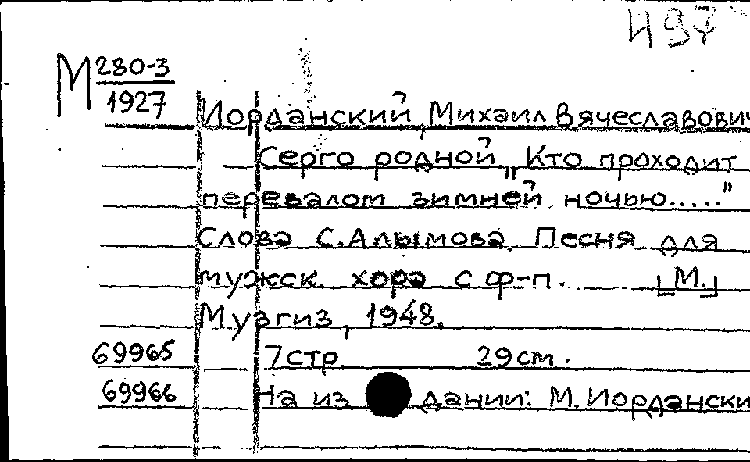 497
М 280-3
1927
Иорданский, Михаил Вячеславович
Серго родной. „Кто проходит
перевалом зимней ночью....."
Слова С. Алымова. Песня для
мужск. хора с ф-п. [М.]
Музгиз, 1948.
69965 7 стр. 29 см.
69966 На издании: М. Иорданский